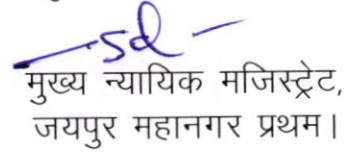 -sd-
मुख्य न्यायिक मजिस्ट्रेट,
जयपुर महानगर प्रथम।